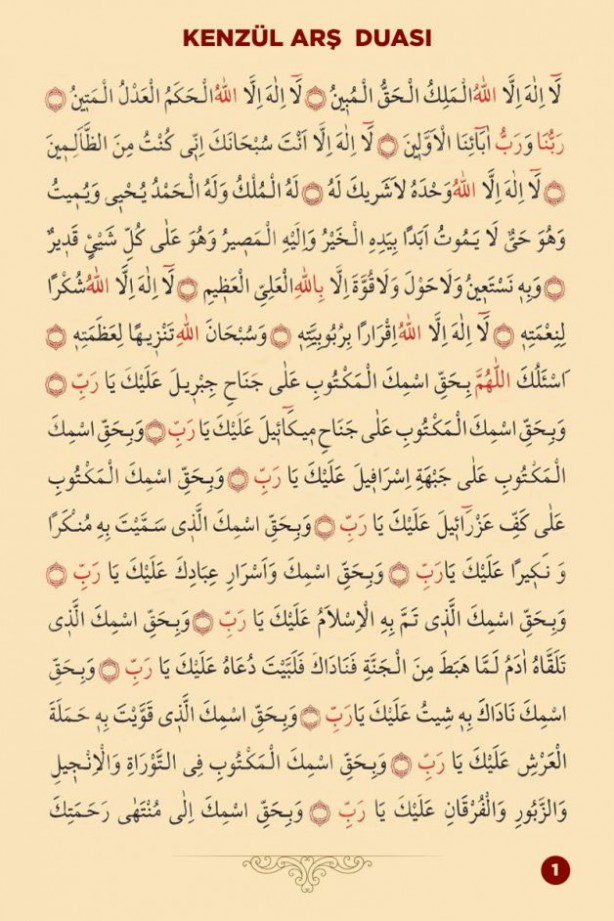 KENZÜL ARŞ DUASI
لَٓا اِلٰهَ اِلَّا اللّٰهُ الْمَلِكُ الْحَقُّ الْمُبٖينُ ۝ لَٓا اِلٰهَ اِلَّا اللّٰهُ الْحَكَمُ الْعَدْلُ الْمَتٖينُ ۝
رَبُّنَا وَرَبُّ اٰبَٓائِنَا الْاَوَّلٖينَ ۝ لَٓا اِلٰهَ اِلَّا اَنْتَ سُبْحَانَكَ اِنّٖى كُنْتُ مِنَ الظَّالِمٖينَ
۝ لَٓا اِلٰهَ اِلَّا اللّٰهُ وَحْدَهُ لَاشَرٖيكَ لَهُ ۝ لَهُ الْمُلْكُ وَلَهُ الْحَمْدُ يُحْيٖى وَيُمٖيتُ
وَهُوَ حَىٌّ لَا يَمُوتُ اَبَدًا بِيَدِهِ الْخَيْرُ وَاِلَيْهِ الْمَصٖيرُ وَهُوَ عَلٰى كُلِّ شَيْئٍ قَدٖيرٌ
۝ وَبِهٖ نَسْتَعٖينُ وَلَاحَوْلَ وَلَاقُوَّةَ اِلَّا بِاللّٰهِ الْعَلِىِّ الْعَظٖيمِ ۝ لَٓا اِلٰهَ اِلَّا اللّٰهُ شُكْرًا
لِنِعْمَتِهٖ ۝ لَٓا اِلٰهَ اِلَّا اللّٰهُ اِقْرَارًا بِرُبُوبِيَّتِهٖ ۝ وَسُبْحَانَ اللّٰهِ تَنْزٖيهًا لِعَظَمَتِهٖ ۝
اَسْئَلُكَ اللّٰهُمَّ بِحَقِّ اسْمِكَ الْمَكْتُوبِ عَلٰى جَنَاحِ جِبْرٖيلَ عَلَيْكَ يَا رَبِّ ۝
وَبِحَقِّ اسْمِكَ الْمَكْتُوبِ عَلٰى جَنَاحِ مٖيكَٓائٖيلَ عَلَيْكَ يَا رَبِّ ۝ وَبِحَقِّ اسْمِكَ
الْمَكْتُوبِ عَلٰى جَبْهَةِ اِسْرَافٖيلَ عَلَيْكَ يَا رَبِّ ۝ وَبِحَقِّ اسْمِكَ الْمَكْتُوبِ
عَلٰى كَفِّ عَزْرَٓائٖيلَ عَلَيْكَ يَا رَبِّ ۝ وَبِحَقِّ اسْمِكَ الَّذٖى سَمَّيْتَ بِهِ مُنْكَرًا
وَ نَكٖيرًا عَلَيْكَ يَارَبِّ ۝ وَبِحَقِّ اسْمِكَ وَاَسْرَارِ عِبَادِكَ عَلَيْكَ يَا رَبِّ ۝
وَبِحَقِّ اسْمِكَ الَّذٖى تَمَّ بِهِ الْاِسْلَامُ عَلَيْكَ يَا رَبِّ ۝ وَبِحَقِّ اسْمِكَ الَّذٖى
تَلَقَّاهُ اٰدَمُ لَمَّا هَبَطَ مِنَ الْجَنَّةِ فَنَادَاكَ فَلَبَّيْتَ دُعَاهُ عَلَيْكَ يَا رَبِّ ۝ وَبِحَقِّ
اسْمِكَ نَادَاكَ بِهٖ شٖيثُ عَلَيْكَ يَارَبِّ ۝ وَبِحَقِّ اسْمِكَ الَّذٖى قَوَّيْتَ بِهٖ حَمَلَةَ
الْعَرْشِ عَلَيْكَ يَا رَبِّ ۝ وَبِحَقِّ اسْمِكَ الْمَكْتُوبِ فِى التَّوْرَاةِ وَالْاِنْجٖيلِ
وَالزَّبُورِ وَالْفُرْقَانِ عَلَيْكَ يَا رَبِّ ۝ وَبِحَقِّ اسْمِكَ اِلٰى مُنْتَهٰى رَحَمَتِكَ
1